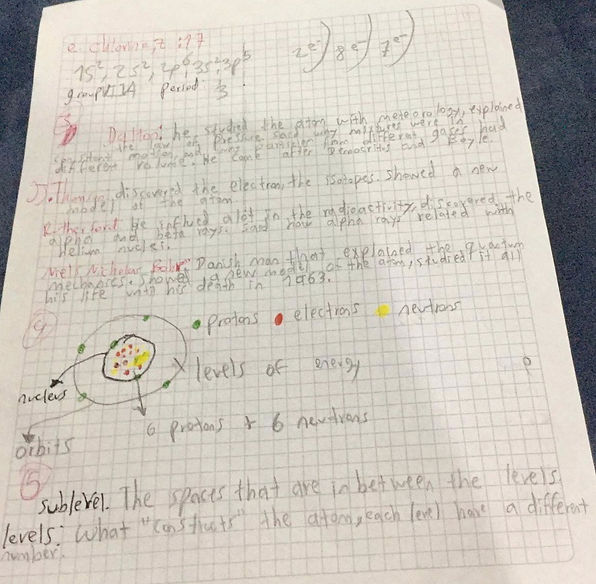 e. chlorine, z: 17
2e⁻) 8e⁻) 7e⁻)
1s², 2s², 2p⁶, 3s², 3p⁵
group VII A period 3
3
he studied the atom with meteorology, explained
the law of pressure, said why mixtures were in
different volume. He came after Democritus and Boyle.
J.J. discovered the electron, the isotopes. showed a new
model of the atom.
He a lot in the radioactivity, discovered the
alpha and beta rays. Said how alpha rays related with
Helium nucleus.
Niels Nicholas Bohr Danish man that explained the quantum
mechanics. Showed a new model of the atom, studied it all
his life until his death in 1963.
4
protons electrons neutrons
levels of energy
nucleus
6 protons + 6 neutrons
orbits
5
sublevel. The spaces that are in between the levels.
levels: What "constructs" the atom, each level have a different
number.